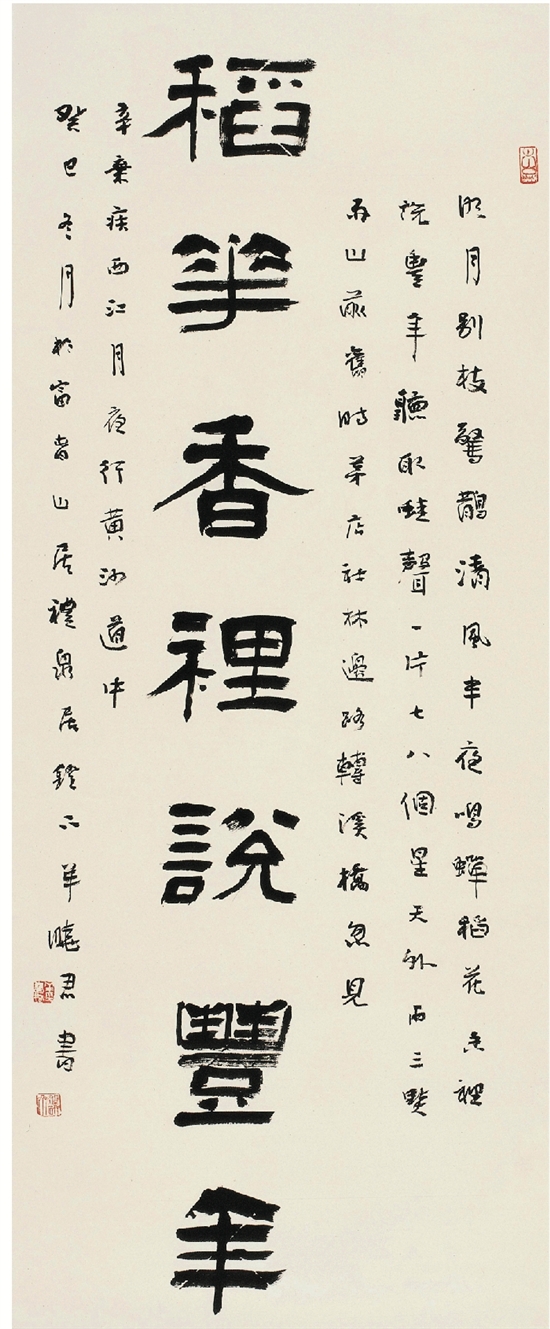 明月別枝驚鵲清風半夜鳴蟬稻花香裡
說豐年聽取蛙聲一片七八個星天外兩三點
雨山前舊時茅店社林邊路轉溪橋忽見
稻華香裡說豐年
辛棄疾西江月夜行黃沙道中
癸巳冬月於富春山居禮泉居鐙下羊曉君書